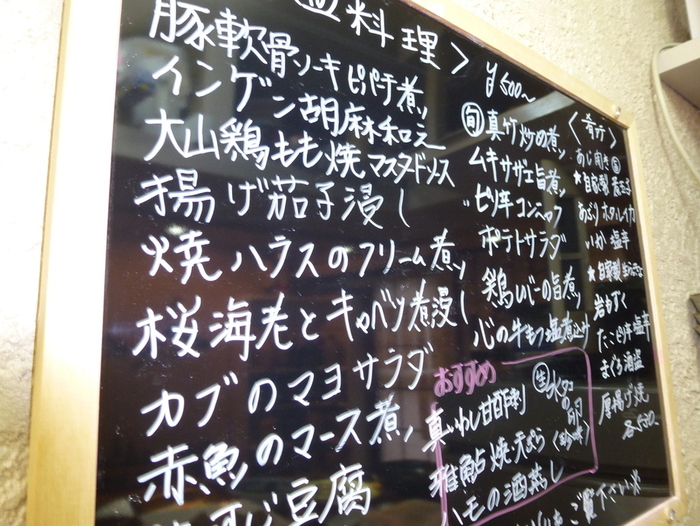 料理＞ ¥500〜
豚軟骨ソーキピパーチ煮
インゲン胡麻和え
大山鶏もも焼マスタードソース
揚げ茄子浸し
焼ハラスのクリーム煮
桜海老とキャベツ煮浸し
カブのマヨサラダ
赤魚のマース煮
豆腐
旬 真竹炒め煮
ムキサザエ旨煮
ピリ辛コンニャク
ポテトサラダ
鶏レバーの旨煮
心の牛もつ塩煮込み
おすすめ
真いわし甘酢
稚鮎焼天ぷら
ハモの酒蒸し
生 水ダコの卵
＜肴＞
あじ開き
★自家製
あぶりホタルイカ
いか塩辛
★自家製
岩もずく
たこピリ辛塩辛
まぐろ酒盗
厚揚げ焼
各500
ご覧下さい